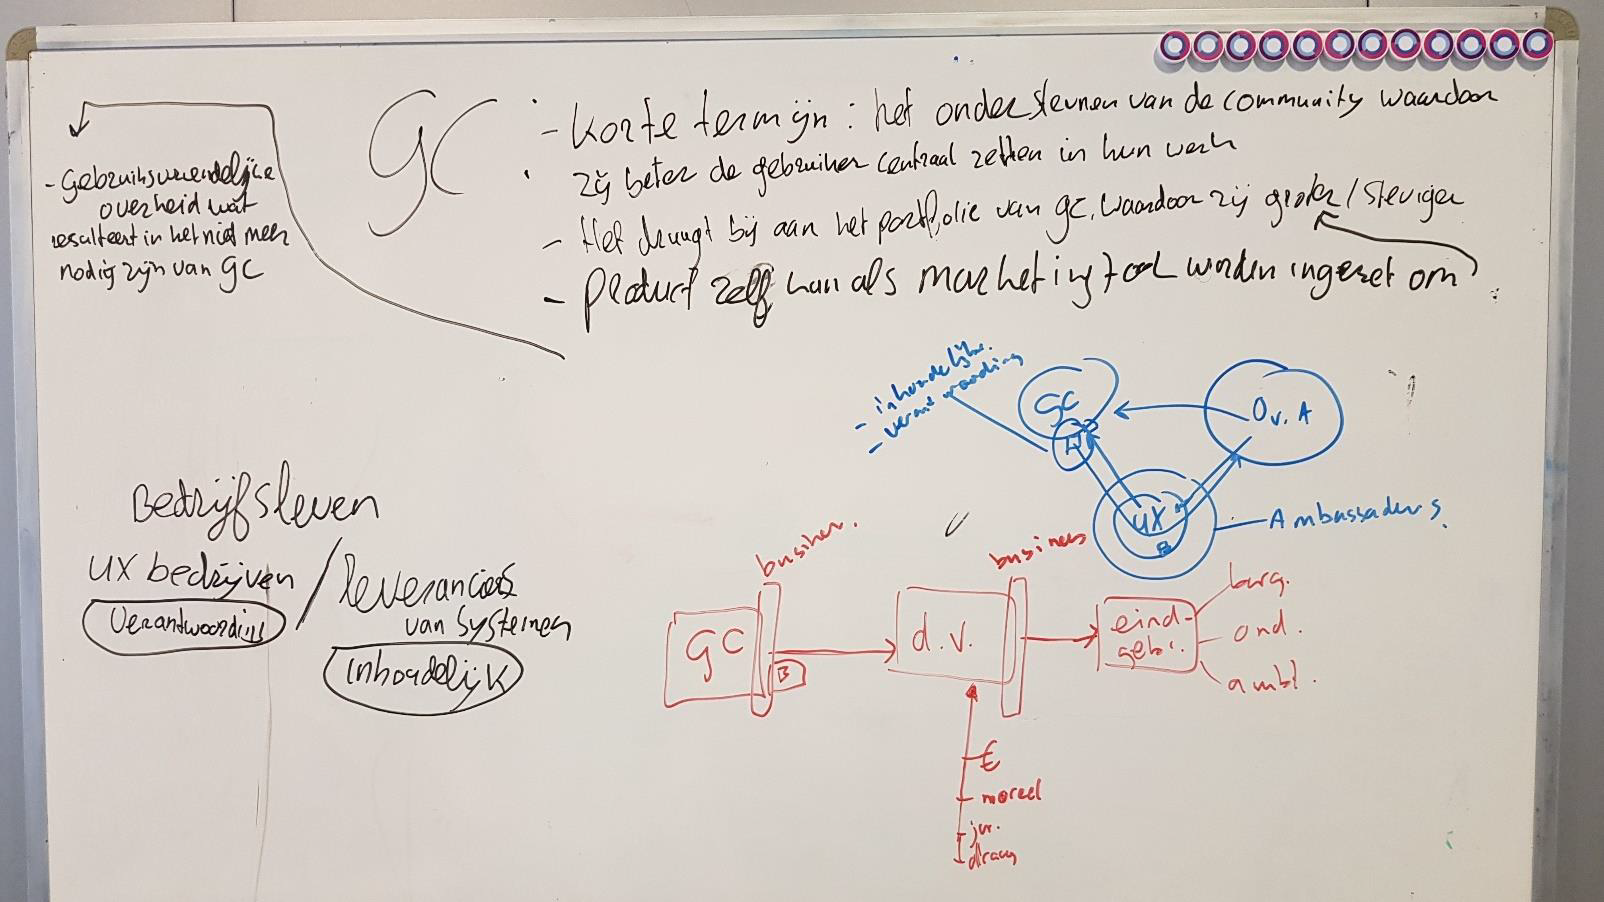 GC
- korte termijn : het ondersteunen van de community waardoor
zij beter de gebruiker centraal zetten in hun werk
- Het draagt bij aan het portfolie van GC, waardoor zij groter / steviger
- product zelf kan als marketing tool worden ingezet om
- Gebruiksvriendelijke
overheid wat
resulteert in het niet meer
nodig zijn van GC
- inhoudelijk.
- verantwoording
GC
Ov. A
UX
B
Ambassadeurs.
Bedrijfsleven
UX bedrijven / leveranciers
van systemen
Verantwoording
Inhoudelijk
business
business
GC
B
d.v.
eind-
gebr.
burg.
ond.
ambt.
€
moreel
jur.
drang